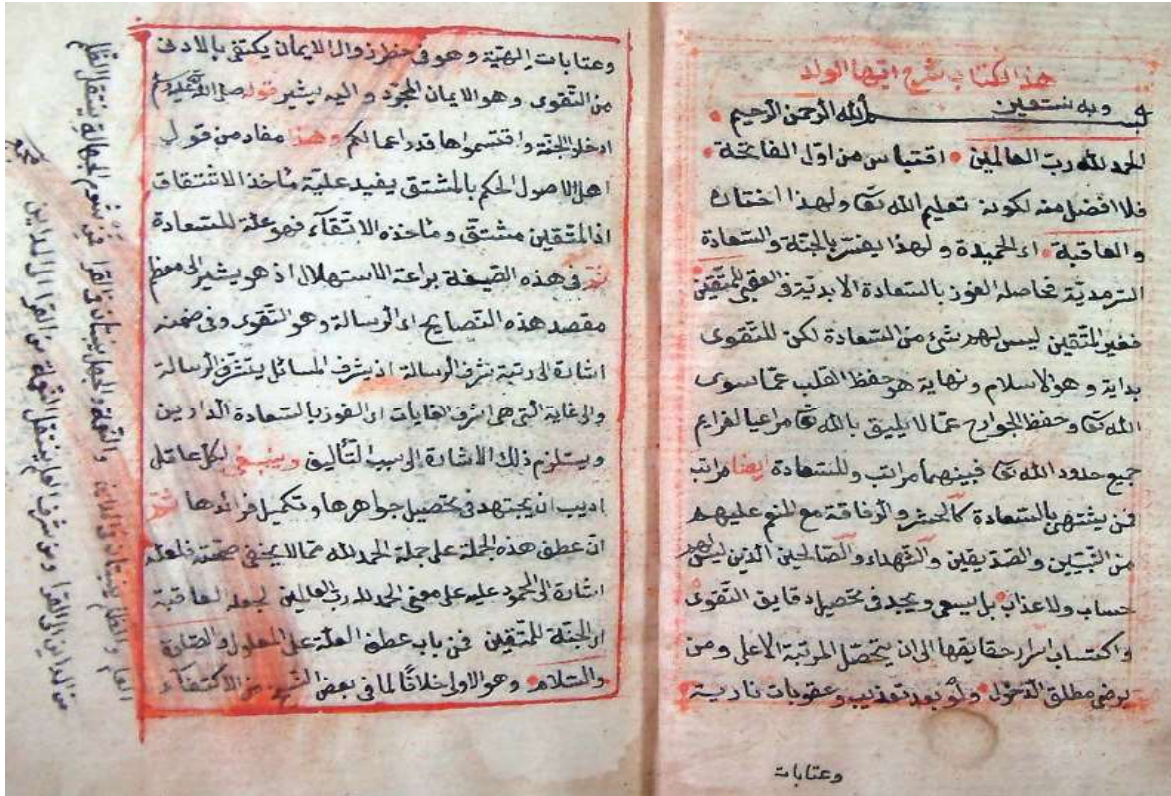 هذا الكتاب شرح ايها الولد
وبه نستعين
بسم الله الرحمن الرحيم
الحمد لله رب العالمين اقتباس من اول الفاتحة
فلا افضل منه لكونه تعليم الله تعا ولهذا اختاره
والعاقبة اى الحميدة ولهذا يفسر بالجنة والسعادة
السرمدية فحاصله الفوز بالسعادة الابدية فى العقبى للمتقين
فغير المتقين ليس لهم شئ من السعادة لكن للتقوى
بداية وهو الاسلام ونهاية هو حفظ القلب عما سوى
الله تعا وحفظ الجوارح عما لا يليق بالله تعا مراعيا
جميع حدود الله تعا فبينهما مراتب وللسعادة ايضا مراتب
فمن ينتهى بالسعادة كالحشر والرفاقة مع المنعم عليهم
من النبيين والصديقين والشهداء والصالحين الذين ليس لهم
حساب ولا عذاب بل يسعى ويجد فى تحصيل دقايق التقوى
واكتساب اسرار حقايقها الى ان يتحصل المرتبة الاعلى ومن
يرضى مطلق الدخول ولو بعد تعذيب وعقوبات نارية
وعتابات
وعتابات الهية وهو فى خطر زوال الايمان يكتفى بالادنى
من التقوى وهو الايمان المجرد واليه يشير قوله صلى الله عليه وسلم
ادخلوا الجنة واقتسموها قدر اعمالكم وهذا مفاد من قول
اهل الاصول الحكم بالمشتق يفيد علية مأخذ الاشتقاق
اذ المتقين مشتق ومأخذه الاتقآء فهو علة للسعادة
ثم فى هذه الصيغة براعة الاستهلال اذ هو يشير الى معظم
مقصد هذه النصايح اى الرسالة وهو التقوى وفى ضمنه
اشارة الى رتبة شرف الرسالة اذ بشرف المسائل يتشرف الرسالة
والى غاية التى هى اشرف الغايات اى الفوز بالسعادة الدارين
ويستلزم ذلك الاشارة الى سبب التأليف وينبغى لكل عاقل
اديب ان يجتهد فى تحصيل جواهرها وتكميل فرائدها ثم
ان عطف هذه الجملة على جملة الحمد لله مما لا يخفى صحته فلعله
اشارة الى المحمود عليه على معنى الحمد لله رب العالمين لجعله العاقبة
اى الجنة للمتقين فمن باب عطف العلة على المعلول والصلوة
والسلام وهو الاولى خلافا لما فى بعض من الاكتفاء
العلم والظلم والنعمة والجهل فى القرا فمن شوم الجهالة ينتقل الظلم
من المداين الى القرا ومن شرف العلم ينتقل النعمة من القرا الى المداين